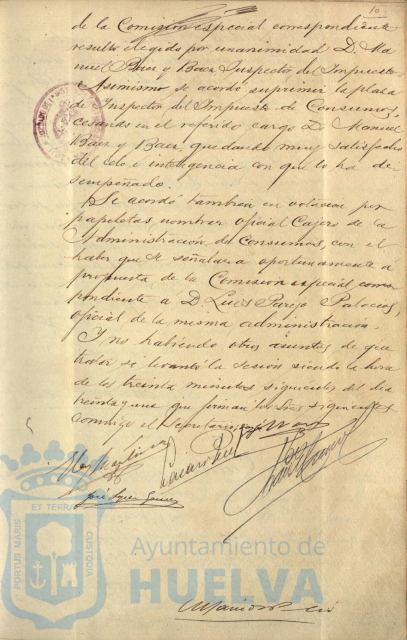 10
de la Comisión especial correspondiente
resultó elegido por unanimidad D. Ma-
nuel Baez y Baez Inspector del Impuesto
Asimismo se acordó suprimir la plaza
de Inspector del Impuesto de Consumos,
cesando en el referido cargo D. Manuel
Baez y Baez quedando muy satisfecho
del celo e inteligencia con que lo ha de-
sempeñado.
Se acordó también en votación por
papeletas nombrar oficial Cajero de la
Administración de Consumos, con el
haber que se señalara oportunamente á
propuesta de la Comisión especial corres-
pondiente a D. Luis Parejo Palacios,
oficial de la misma administración.
Y no habiendo otros asuntos de que
tratar se levantó la sesión siendo la hora
de los treinta minutos siguientes del dia
treinta y uno que firman los Sres siguientes
conmigo el Secretario
PORTUS MARIS
ET TERRAE
CUSTODIA
Ayuntamiento de
HUELVA